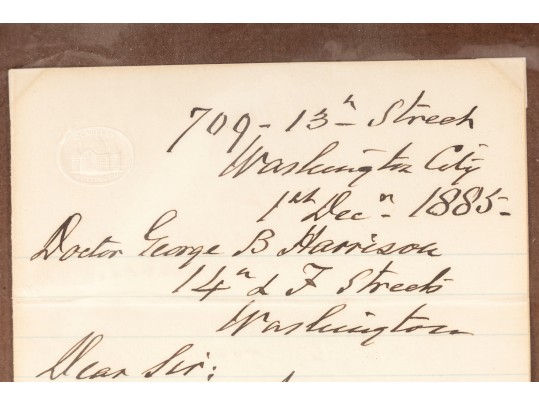 709 - 13th Street
Washington City
1st Decr. 1885 -
Doctor George B Harrison
14th & F Streets
Washington
Dear Sir: